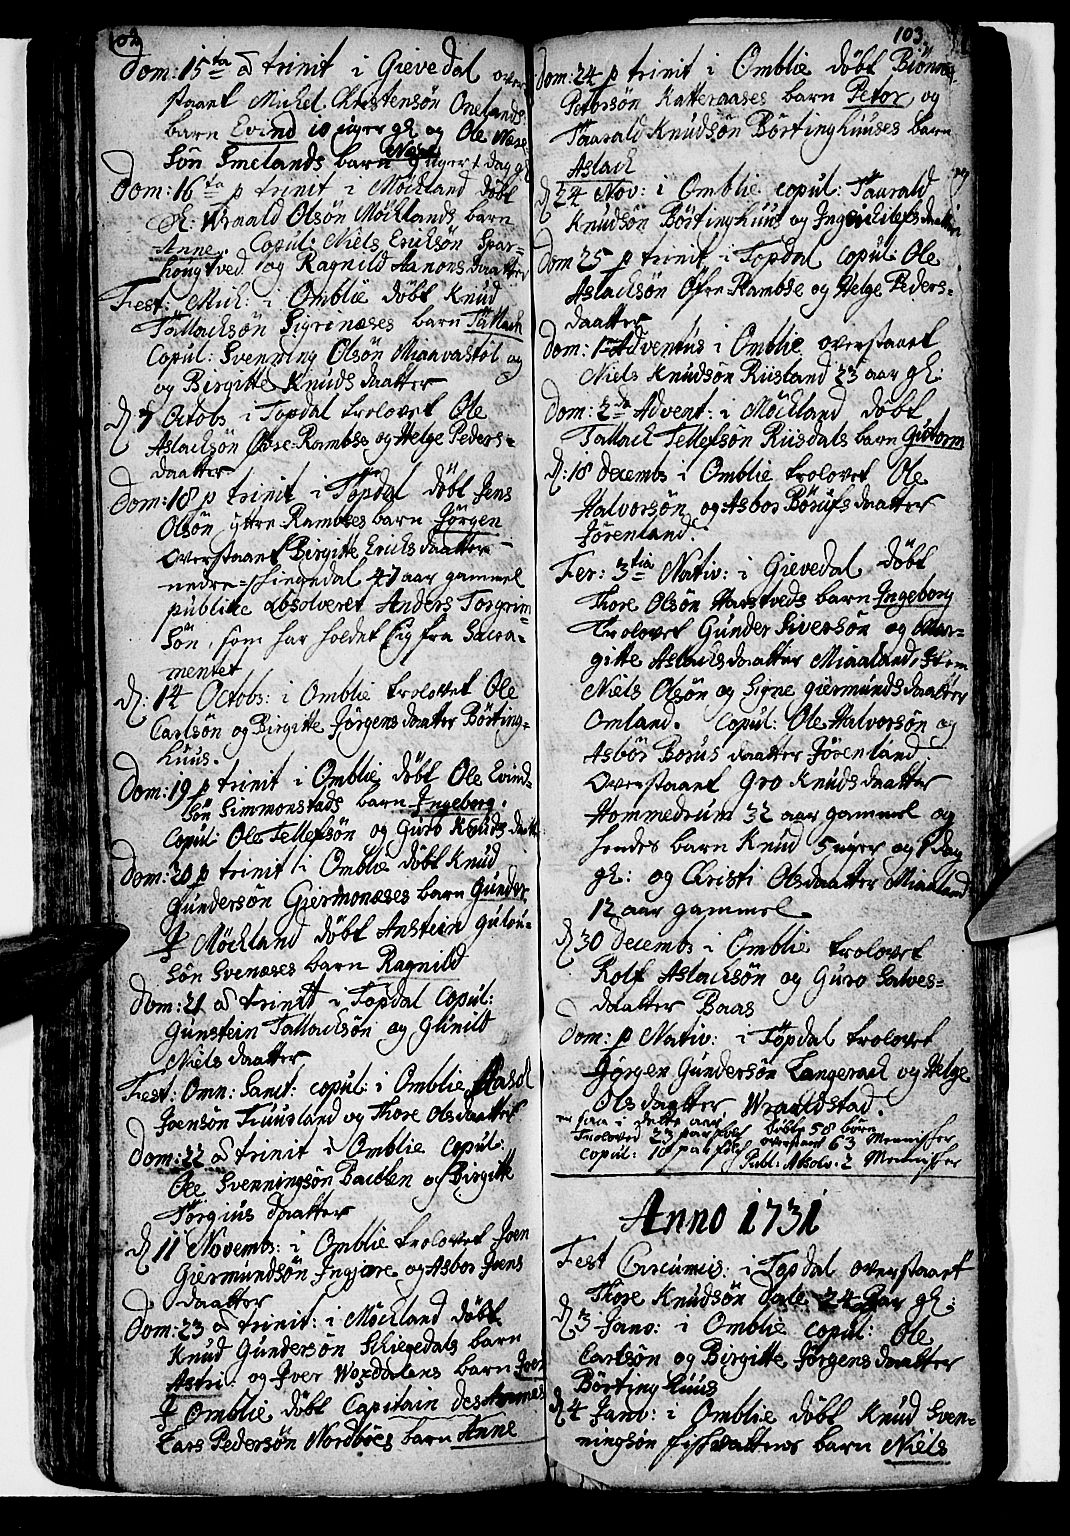 102
Dom: 15ta à trinit i Gievedal over
staaet Michel Christensön Onelands
barn Evind 10 uger gl: og Ole
Sön Smelands barn Niels uger 1 dag gl
Dom: 16ta p trinit i Möckland döbt
Wraald Olsön Möcklands barn
Anne, Copul: Niels Ericksön Spar-
hougtved og Ragnild Aanons daatter
Fest: Mich: i Omblie döbt Knud
Tallacksön Sigrinæses barn Tallach
Copul: Svenning Olsön Miaavastöl og
og Birgitte Knuds daatter
D. 7 Octobs i Topdal trolovet Ole
Aslacksön Öfre-Rambse og Helge Peders-
daatter
Dom: 18 p trinit i Topdal döbt Jens
Olsön yttre-Rambses barn Jörgen
overstaaet Birgitte Ericksdaatter
nedre-Hingedal 47 aar gammel
publice absolveret Anders Torgrim
Sön, som har holdet sig fra Sacra-
mentet
D: 14 Octobs: i Omblie trolovet Ole
Carlsön og Birgitte Jörgensdaatter Börting-
huus.
Dom: 19 p trinit i Omblie döbt Ole Evind-
Sön Simmonstads barn Ingeborg.
Copul: Ole Tellefsön og Guro Knuds daatt
Dom: 20 p trinit i Omblie döbt Knud
Gundersön Giermonæses barn Gunder
I Möckland döbt Anstein Gulou-
sön Svenæses barn Ragnild
Dom: 21 à trinit i Topdal Copul:
Gunstein Tallacksön og Gunild
Niels daatter
Fest: Omn: Sanct: copul: i Omblie Aasol
Joensön Tuusland og Thore Olsdaatter
Dom: 22 à trinit i Omblie Copul:
Ole Svenningsön Backen og Birgitte
Törgius daatter
D. 11 Novembs: i Omblie trolovet Joen
Giermundsön Ingjære og Asbor Joens
daatter
Dom: 23 à trinit: i Möckland döbt
Knud Gundersön Skieredals barn
Astri. og Iver Woxdalens barn Joen
I Omblie döbt Capitain des Armes
Lars Pedersön Nordböes barn Anne
103
Dom: 24 p trinit i Omblie döbt Biönn
Petersön Katteraases barn Peter, og
Taarald Knudsön Börtinghuuses barn
Aslach
D 24 Nov: i Omblie copul: Taarald
Knudsön Börtinghuus og Inger Eilefsdaatter
Dom 25 p trinit i Topdal copul: Ole
Aslacksön Öfre-Rambse og Helge Peders-
daatter
Dom: 1ma Adventus i Omblie overstaaet
Niels Knudsön Riisland 23 aar gl:
Dom: 2da Advent: i Möckland döbt
Tallack Tellefsön Riisdals barn Gutorm
D: 18 decembs i Omblie trolovet Ole
Halvorsön og Asbor Börufs daatter
Jörenland.
Fer: 3tia Nativ: i Gievedal döbt
Thore Olsön Harstveds barn Ingeborg
Trolovet Gunder Siversön og Mar-
gitte Aslachsdaatter Miaaland, Item
Niels Olsön og Signe giermundsdaatter
Omland. Copul: Ole Halvorsön og
Asbör Borus daatter Jörenland
Overstaaet Gro Knuds daatter
Hommedrum 32 aar gammel og
hendes barn Knud 5 uger og 1 dag
gl: og Christi Olsdaatter Miaaland
12 aar gammel
D 30 decembs i Omblie trolovet
Rolf Aslacksön og Guro Salves-
daatter Baas
Dom: p Nativ: i Topdal trolovet
Jörgen Gundersön Langerack og Helge
Olsdaatter Wraaldstad.
er saa i dette aar
Trolovet 23 par folch döbte 58 börn
copul: 10 par folch overstaaet 63 Mennisker
Publ: Absolv: 2 Mennisker
Anno 1731
Fest Circumcis: i Topdal overstaaet
Thore Knudsön Dale 24 aar gl:
D 3 Janv: i Omblie copul: Ole
Carlsön og Birgitte Jörgensdaatter
Börtinghuus
D 4 Janv: i Omblie döbt Knud Sven-
ningsön Fiskvattens barn Niels